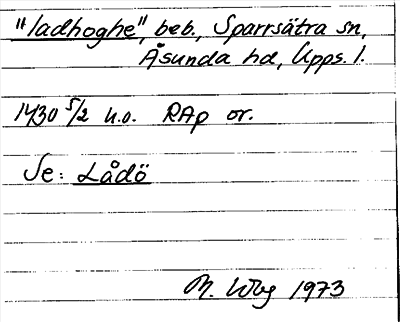 "ladhoghe", beb., Sparrsätra sn,
Åsunda hd, Upps. l.
1430 5/2 u.o. RAp or.
Se: Lådö
M. 1973